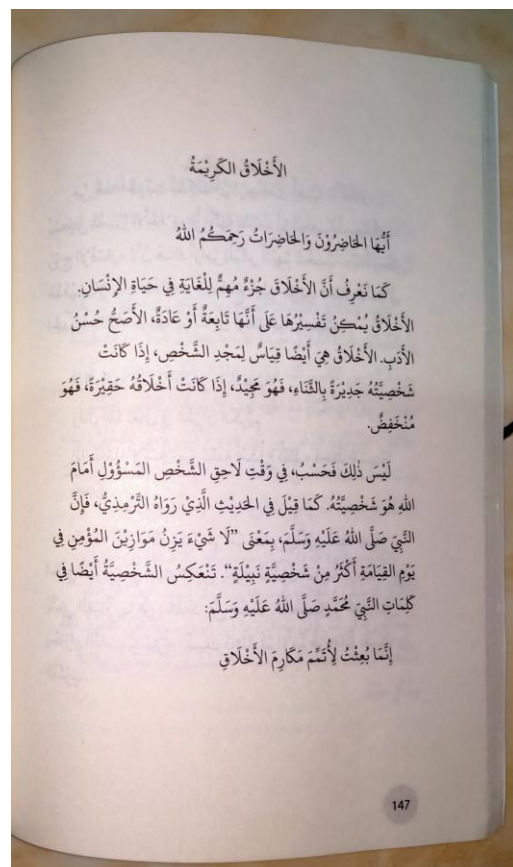 الأَخْلَاقُ الكَرِيْمَةُ
أَيُّهَا الحَاضِرُوْنَ وَالحَاضِرَاتُ رَحِمَكُمُ اللهُ
كَمَا نَعْرِفُ أَنَّ الأَخْلَاقَ جُزْءٌ مُهِمٌّ لِلْغَايَةِ فِي حَيَاةِ الإِنْسَانِ.
الأَخْلَاقُ يُمْكِنُ تَفْسِيْرُهَا عَلَى أَنَّهَا تَابِعَةٌ أَوْ عَادَةٌ، الأَصَحُّ حُسْنُ
الأَدَبِ. الأَخْلَاقُ هِيَ أَيْضًا قِيَاسٌ لِمَجْدِ الشَّخْصِ، إِذَا كَانَتْ
شَخْصِيَّتُهُ جَدِيْرَةً بِالثَّنَاءِ، فَهُوَ مَجِيْدٌ، إِذَا كَانَتْ أَخْلَاقُهُ حَقِيْرَةً، فَهُوَ
مُنْخَفِضٌ.
لَيْسَ ذٰلِكَ فَحَسْبُ، فِي وَقْتٍ لَاحِقٍ الشَّخْصِ المَسْؤُوْلِ أَمَامَ
اللهِ هُوَ شَخْصِيَّتُهُ. كَمَا قِيْلَ فِي الحَدِيْثِ الَّذِيْ رَوَاهُ التِّرْمِذِيُّ، فَإِنَّ
النَّبِيَّ صَلَّى اللهُ عَلَيْهِ وَسَلَّمَ، بِمَعْنَى ”لَا شَيْءَ يَزِنُ مَوَازِيْنَ المُؤْمِنِ فِي
يَوْمِ القِيَامَةِ أَكْثَرُ مِنْ شَخْصِيَّةٍ نَبِيْلَةٍ“. تَنْعَكِسُ الشَّخْصِيَّةُ أَيْضًا فِي
كَلِمَاتِ النَّبِيِّ مُحَمَّدٍ صَلَّى اللهُ عَلَيْهِ وَسَلَّمَ:
إِنَّمَا بُعِثْتُ لِأُتَمِّمَ مَكَارِمَ الأَخْلَاقِ
147